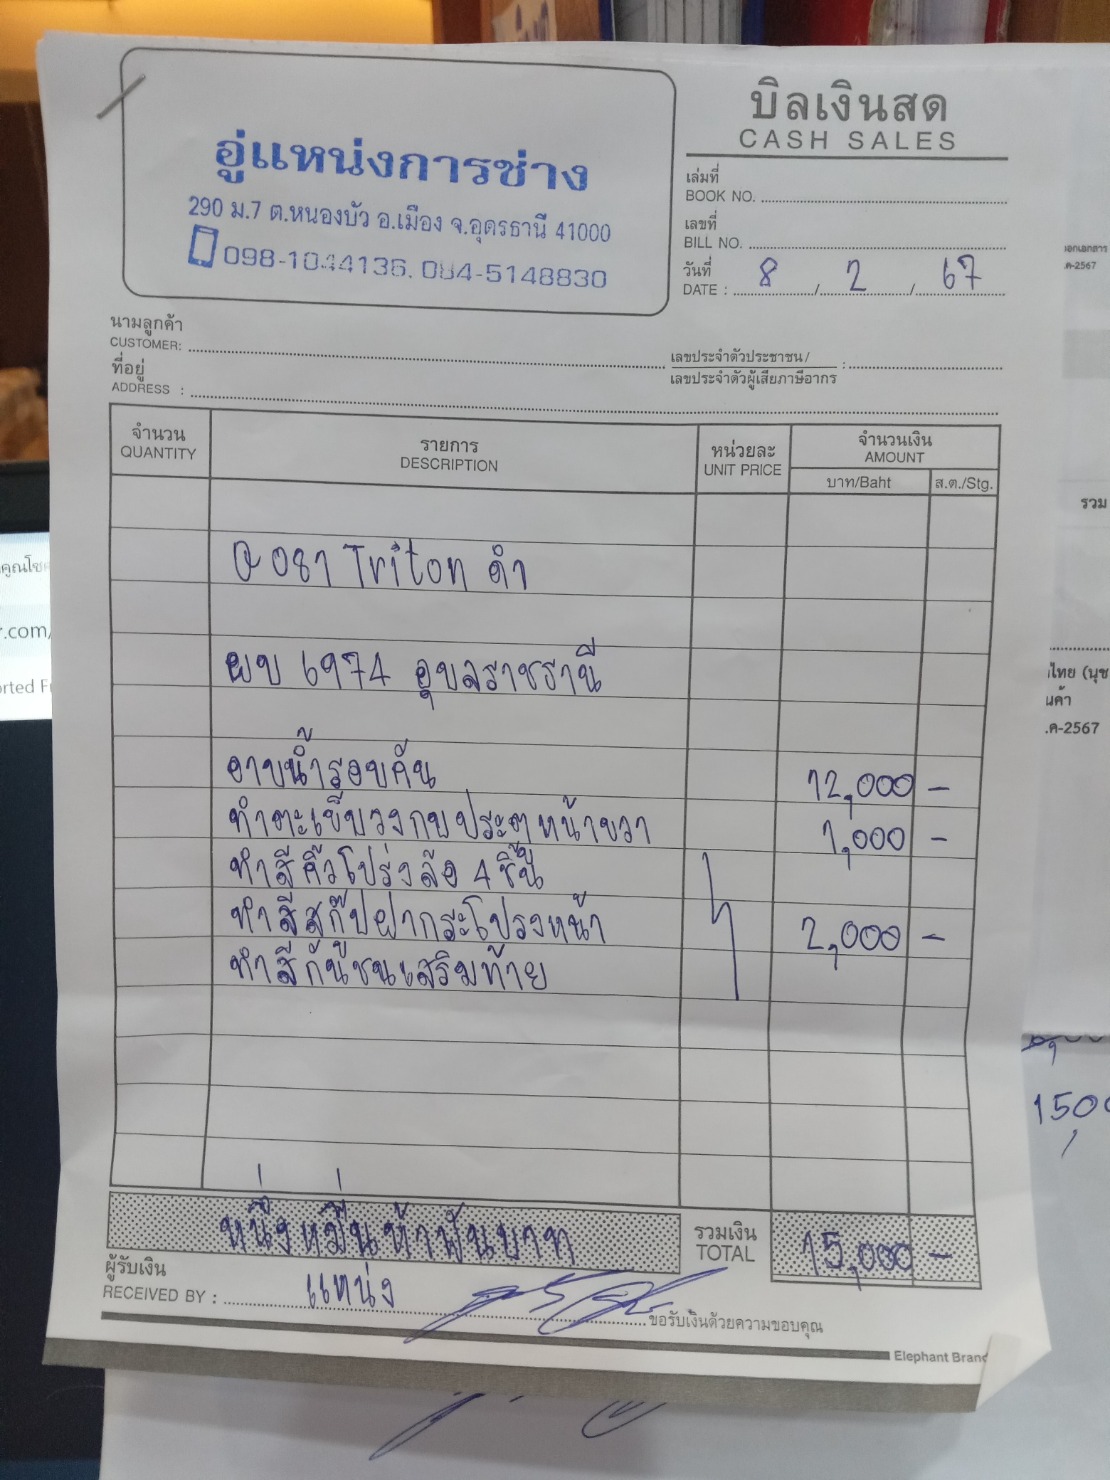 อู่แหน่งการช่าง
290 ม.7 ต.หนองบัว อ.เมือง จ.อุดรธานี 41000
098-1044136. 084-5148830
บิลเงินสด
CASH SALES
เล่มที่
BOOK NO.
เลขที่
BILL NO.
วันที่
DATE : 8 / 2 / 67
นามลูกค้า
CUSTOMER:
ที่อยู่
ADDRESS :
เลขประจำตัวประชาชน/ :
เลขประจำตัวผู้เสียภาษีอากร
จำนวน
QUANTITY
รายการ
DESCRIPTION
หน่วยละ
UNIT PRICE
จำนวนเงิน
AMOUNT
บาท/Baht ส.ต./Stg.
Q 081 Triton ดำ
ผบ 6974 อุบลราชธานี
อาบน้ำรอบคัน 12,000 -
ทำตะเข็บวงกบประตูหน้าขวา 1,000 -
ทำสีคิ้วโป่งล้อ 4 ชิ้น
ทำสีสกู๊ปฝากระโปรงหน้า 2,000 -
ทำสีกันชนเสริมท้าย
หนึ่งหมื่นห้าพันบาท
รวมเงิน
TOTAL 15,000 -
ผู้รับเงิน
RECEIVED BY : แหน่ง
ขอรับเงินด้วยความขอบคุณ
Elephant Brand
รวม
ไทย (นุช
.ค-2567